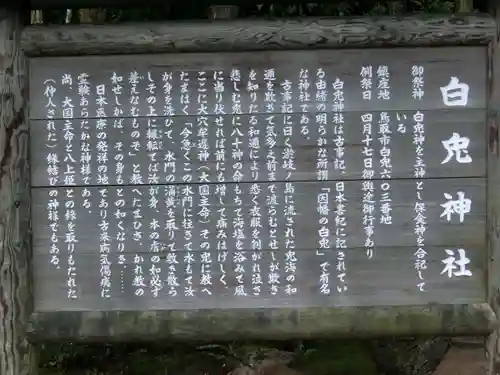 白兎神社
御祭神　白兎神を主神とし保食神を合祀して
いる
鎮座地　鳥取市白兎六〇三番地
例祭日　四月十七日御輿途御行事あり
白兎神社は古事記、日本書紀に記されてい
る由緒の明らかな所謂「因幡の白兎」で有名
な神社である。
古事記に曰く淤岐ノ島に流された兎海の和
邇を欺きて気多之前まで渡らむとせしが欺き
を知りたる和邇により悉く衣服を剝がれ泣き
悲しむ兎に八十神の命もちて海塩を浴みて風
に当り伏せれば前よりも増して痛みはげしく、
ここに大穴牟遅神（大国主命）その兎に教へ
たまはく「今急くこの水門に往きて水もて汝
が身を洗ひて、水門の蒲黄を取りて敷き散ら
しその上に輾転てば汝が身、本の膚の如必ず
差えなむものぞ」と教へたまひき、かれ教の
如せしかば、その身もとの如くなりき……
日本医療の発祥の地であり古来病気傷痍に
霊験あらたかな神様である。
尚、大国主命と八上姫との縁を取りもたれた
（仲人された）縁結びの神様でもある。